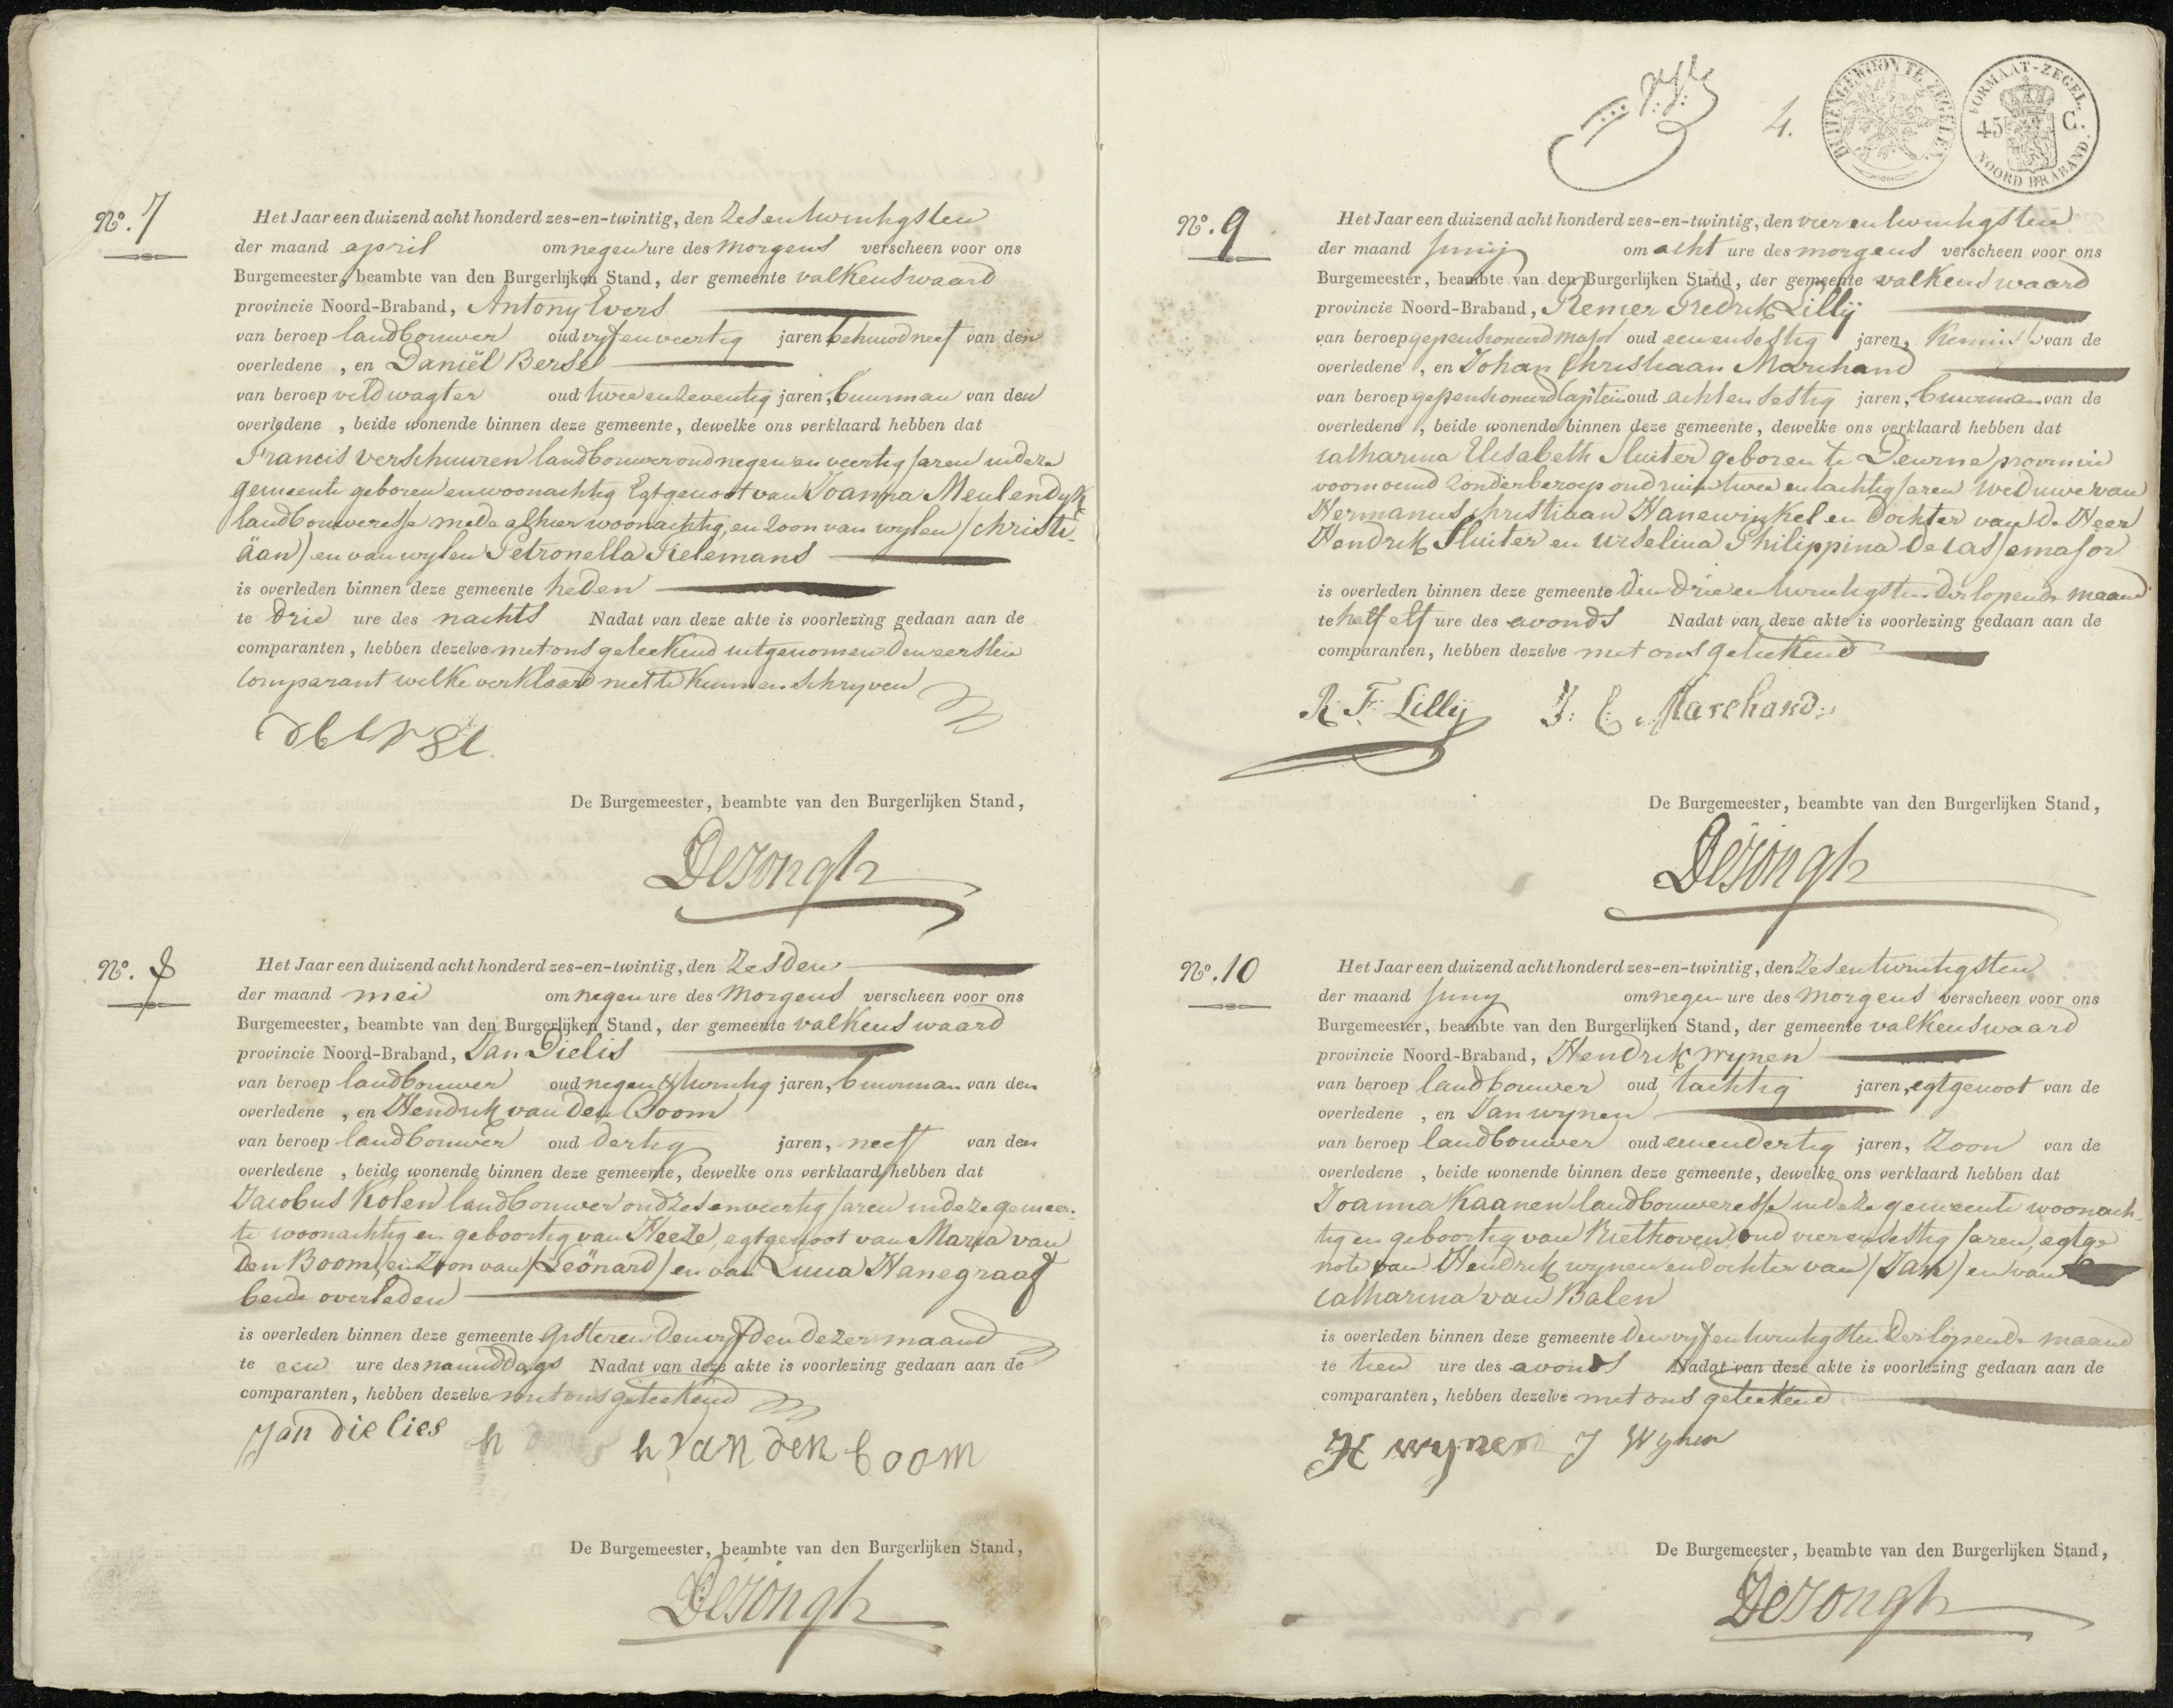 No. 7
Het Jaar een duizend acht honderd zes-en-twintig, den zesentwintigsten
der maand april om negen ure des morgens verscheen voor ons
Burgemeester, beambte van den Burgerlijken Stand, der gemeente valkenswaard
provincie Noord-Braband, Antony Evers
van beroep landbouwer oud vyfenveertig jaren behuwdneef van den
overledene , en Daniël Berse
van beroep veldwagter oud tweeenzeventig jaren, buurman van den
overledene , beide wonende binnen deze gemeente, dewelke ons verklaard hebben dat
Francis verschuuren landbouwer oud negen en veertig jaren indeze
gemeente geboren en woonachtig Egtgenoot van Joanna Meulendyk
landbouweresse mede alhier woonachtig, en zoon van wylen / Christi-
äan / en van wylen Petronella Tielemans
is overleden binnen deze gemeente heden
te drie ure des nachts Nadat van deze akte is voorlezing gedaan aan de
comparanten, hebben dezelve met ons geteekend uitgenomen den eersten
Comparant welke verklaard niet te kunnen schryven
dberse
De Burgemeester, beambte van den Burgerlijken Stand,
DeJongh
No. 8
Het Jaar een duizend acht honderd zes-en-twintig, den zesden
der maand mei om negen ure des morgens verscheen voor ons
Burgemeester, beambte van den Burgerlijken Stand, der gemeente valkenswaard
provincie Noord-Braband, Jan Dielis
van beroep landbouwer oud negen & twintig jaren, buurman van den
overledene , en Hendrik van den Boom
van beroep landbouwer oud dertig jaren, neef van den
overledene , beide wonende binnen deze gemeente, dewelke ons verklaard hebben dat
Jacobus Kolen landbouwer oud zesenveertig jaren in deze gemeen-
te woonachtig en geboortig van Heeze, egtgenoot van Maria van
den Boom, en zoon van / Leönard / en van Luua Hanegraaf
beide overleden
is overleden binnen deze gemeente gisteren den vyfden dezer maand
te een ure des namiddags Nadat van deze akte is voorlezing gedaan aan de
comparanten, hebben dezelve met ons geteekend
Jan dielies h van den boom
De Burgemeester, beambte van den Burgerlijken Stand,
DeJongh
4.
BUITENGEWOONTE ZEGELEN
FORMAAT-ZEGEL. 45 C. NOORD BRABAND.
No. 9
Het Jaar een duizend acht honderd zes-en-twintig, den vierentwintigsten
der maand Junij om acht ure des morgens verscheen voor ons
Burgemeester, beambte van den Burgerlijken Stand, der gemeente valkenswaard
provincie Noord-Braband, Remer Fredrik Lillij
van beroep gepensioneerd major oud eenensestig jaren, kennis van de
overledene , en Johan Christiaan Marchand
van beroep gepensioneerd Captein oud achtensestig jaren, buurman van de
overledene , beide wonende binnen deze gemeente, dewelke ons verklaard hebben dat
Catharina Elisabeth Sluiter geboren te Deurne provincie
voornoemd zonder beroep oud ruim twee entachtig jaren Weduwe van
Hermanus Christiaan Hanewinkel en dochter van de Heer
Hendrik Sluiter en Urselina Philippina de Cassemajor
is overleden binnen deze gemeente den drieentwintigsten der lopende maand
te half elf ure des avonds Nadat van deze akte is voorlezing gedaan aan de
comparanten, hebben dezelve met ons geteekend
R. F. Lillij J: C. Marchand.
De Burgemeester, beambte van den Burgerlijken Stand,
DeJongh
No. 10
Het Jaar een duizend acht honderd zes-en-twintig, den zesentwintigsten
der maand Juny om negen ure des morgens verscheen voor ons
Burgemeester, beambte van den Burgerlijken Stand, der gemeente valkenswaard
provincie Noord-Braband, Hendrik wynen
van beroep landbouwer oud tachtig jaren, egtgenoot van de
overledene , en Jan wynen
van beroep landbouwer oud eenendertig jaren, zoon van de
overledene , beide wonende binnen deze gemeente, dewelke ons verklaard hebben dat
Joanna Kaanen landbouweresse in deze gemeente woonach-
tig en geboortig van Riethoven oud vierensestig jaren, egtge
note van Hendrik wynen en dochter van / Jan / en van
Catharina van Balen
is overleden binnen deze gemeente den vyfentwintigsten der lopende maand
te tien ure des avonds Nadat van deze akte is voorlezing gedaan aan de
comparanten, hebben dezelve met ons geteekend
H wynen J Wynen
De Burgemeester, beambte van den Burgerlijken Stand,
DeJongh